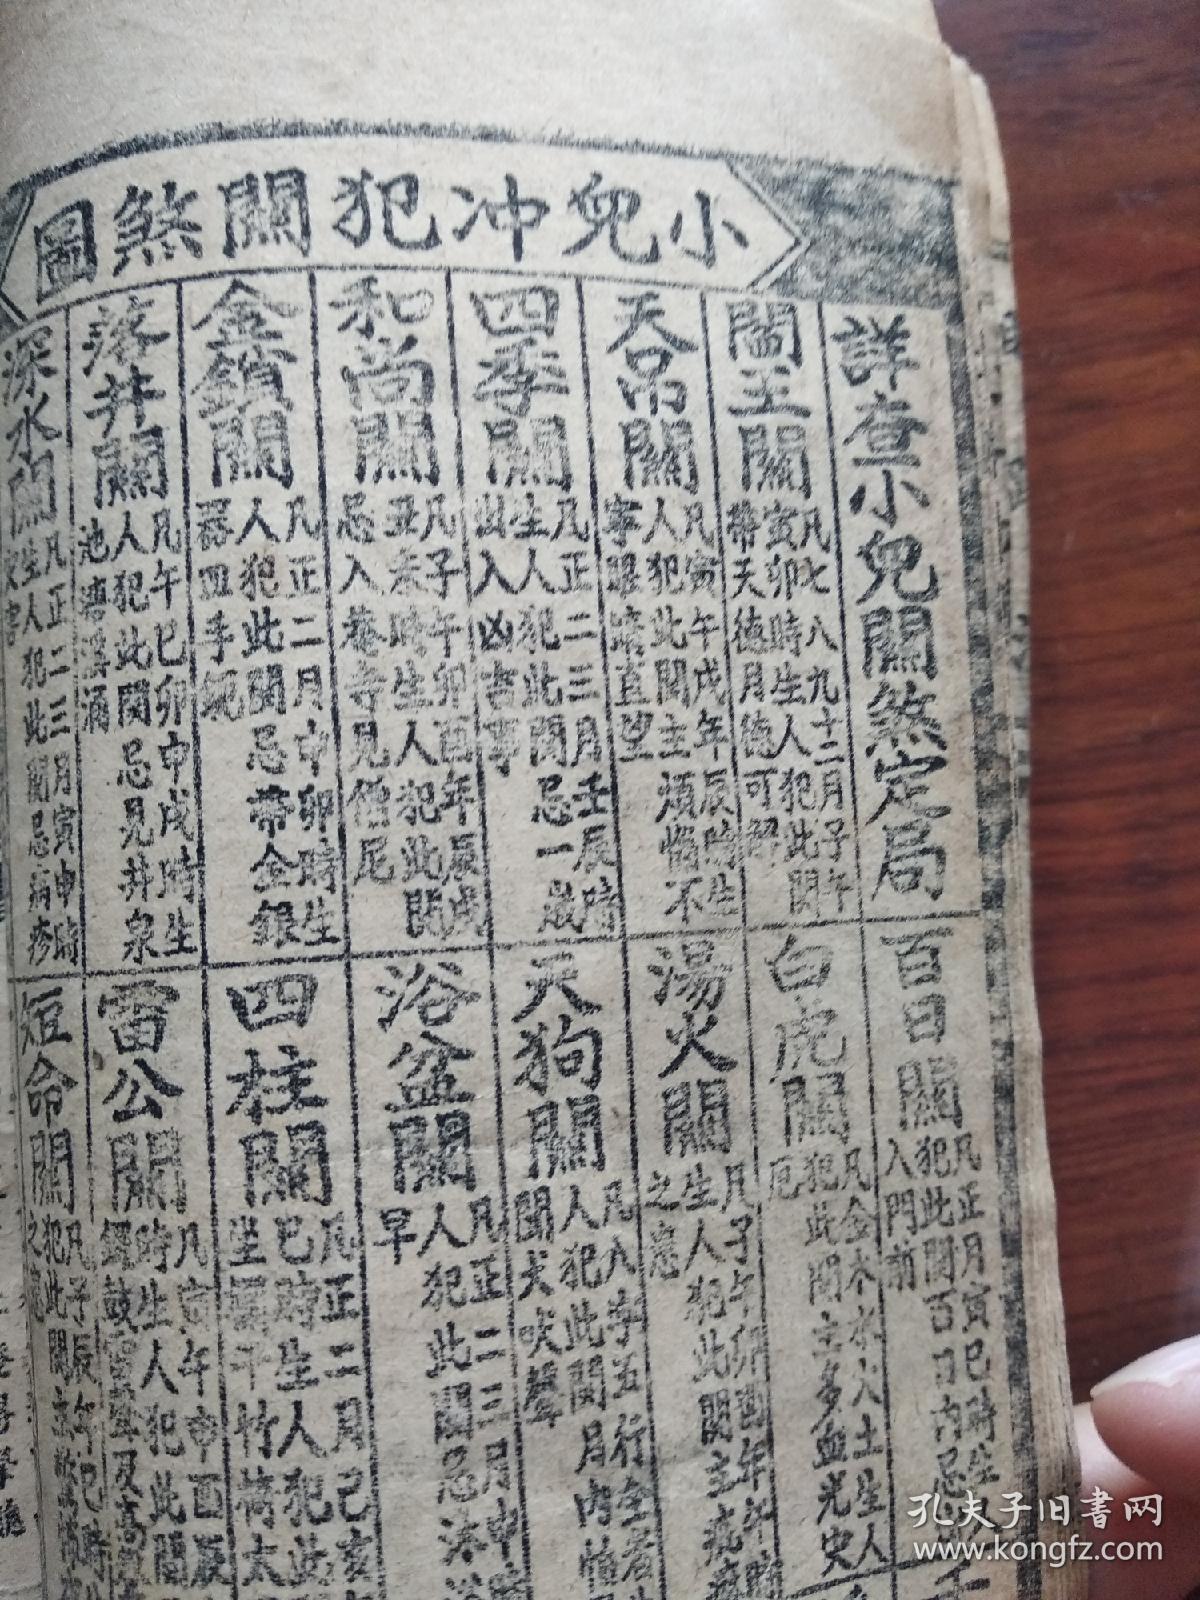 小兒冲犯關煞圖
詳查小兒關煞定局
閻王關
凡七八九十二月子午
寅卯時生人犯此関
帶天德月德可解
天吊關
凡寅午戌年辰時生
人犯此関主煩惱不
寧眼睛直望
四季關
凡正二三月壬辰時
生人犯此関忌一歲
出入凶吉事
和尚關
凡子午卯酉年辰戌
丑未時生人犯此関
忌入菴寺見僧尼
金鎖關
凡正二月申卯時生
人犯此関忌帶金銀
器皿手
落井關
凡午巳卯申戌時生
人犯此関忌見井泉
池塘
深水關
凡正二三月寅申時
生人犯此関忌
百日關
凡正月寅巳時生
犯此関百日內忌
入門前
白虎關
凡金木水火土生人
犯此関主多血光灾
厄
湯火關
凡子午卯酉年午時
生人犯此関主
之患
天狗關
凡入學五行全者
人犯此関月內怕
聞犬吠聲
浴盆關
凡正二三月申
人犯此関忌沐浴
早
四柱關
凡正二月巳亥
巳時生人犯此
坐竹椅太
雷公關
凡寅午申酉
時生人犯此関
鑼鼓雷聲及高
短命關
凡子辰年巳時
犯此関主
之
孔夫子旧書网
www.kongfz.com